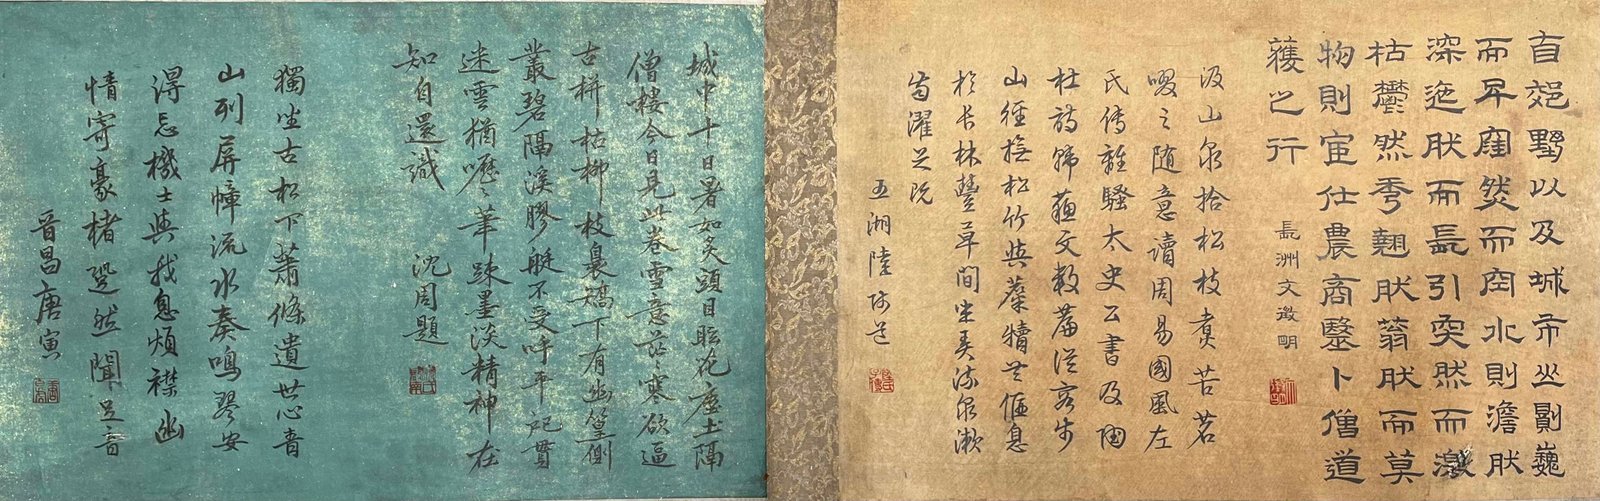 自郊墅以及城市丘剧巍
而昇窪然而空水則澹肰
深迤肰而長引突然而激
枯欝然秀翹肰蓊肰而莫
物則宦仕農商毉卜僧道
䕶之行
長洲文徵明
汲山泉拾松枝煑苦茗
啜之随意讀周易國風左
氏傳離騷太史公書及陶
杜詩韓蘇文數篇從容步
山徑撫松竹與麋犢共偃息
於長林豐草間坐弄流泉漱
齒濯足既
五湖陸師道
城中十日暑如炙頭目眩花塵土隔
僧樓今日見此卷雪意茫茫寒欲逼
古栟枯柳枝裊矯下有幽篁側
叢碧隔溪膠艇不受呼平汜貫
迷雲猶嚦嚦華踈墨淡精神在
知自還識
沈周題
獨坐古松下蕭條遺世心青
山列屏幛流水奏鳴琴安
得忘機士與我息煩襟幽
情寄豪楮跫然聞足音
晉昌唐寅